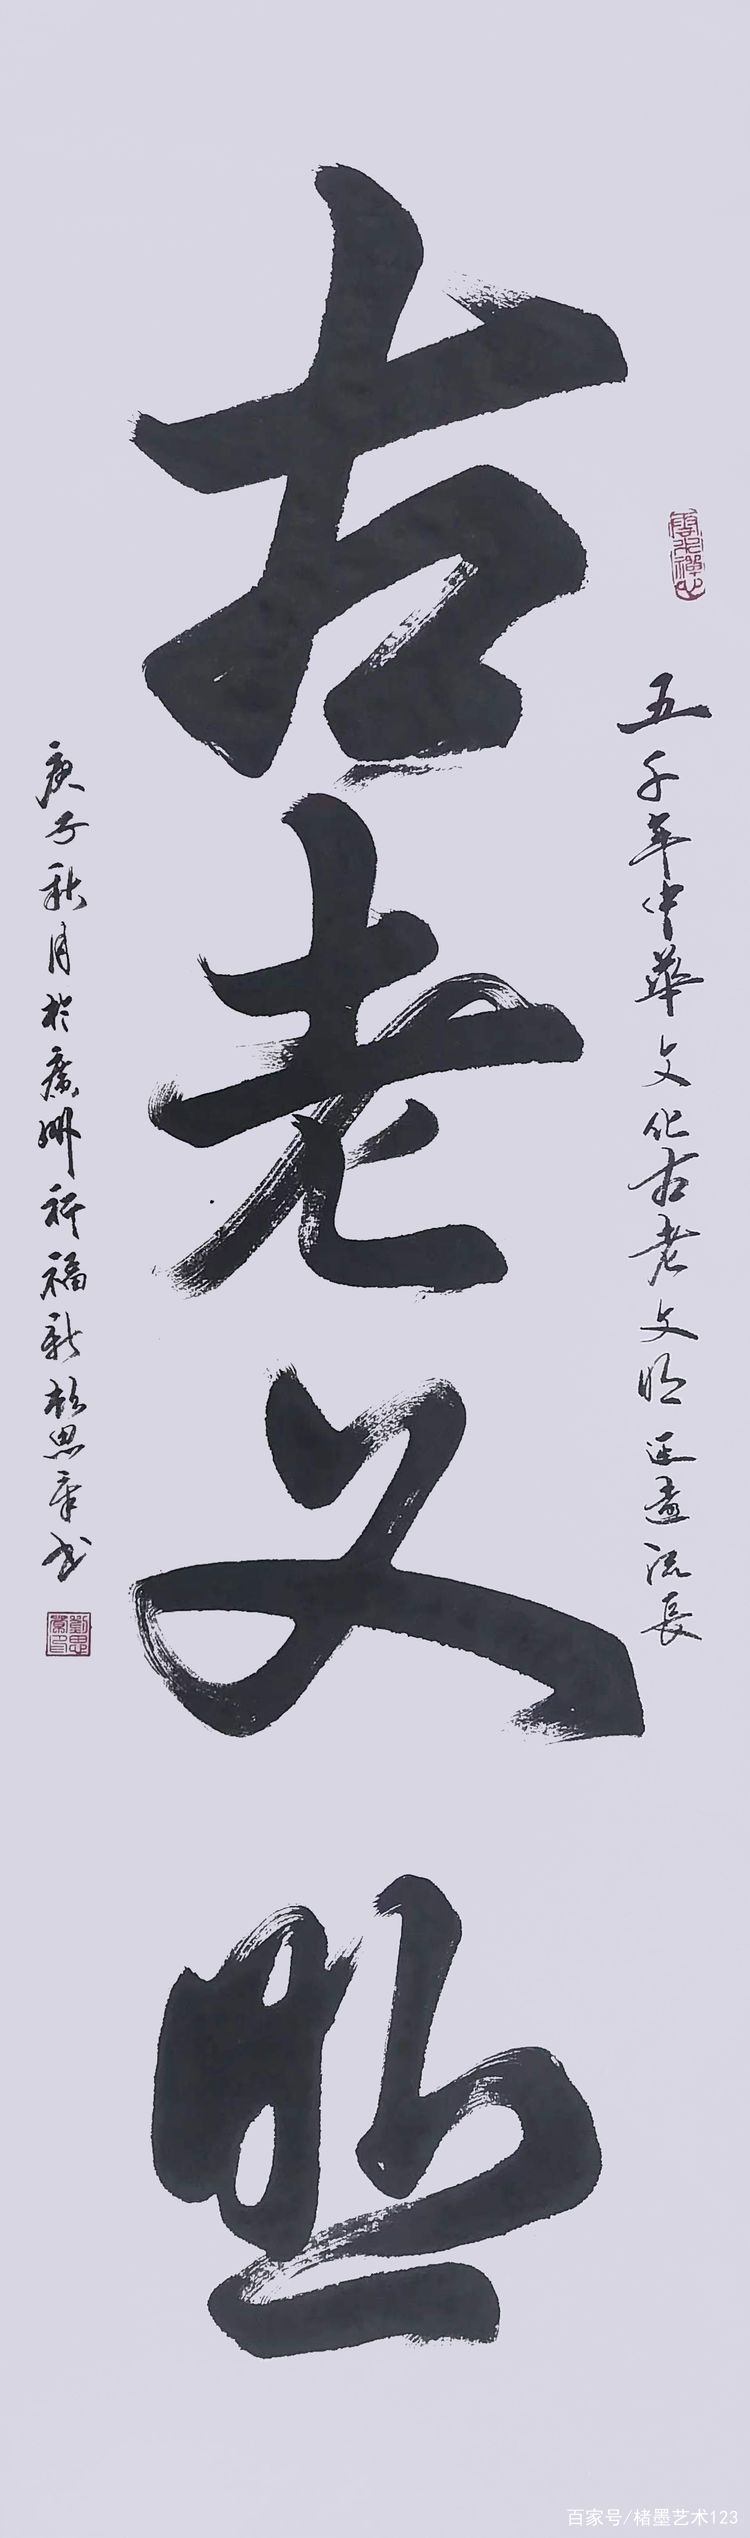 雲水禪心
五千年中華文化古老文明遠流長
古老文明
庚子秋月於廣州祈福新村思章書
百家号/楮墨艺术123